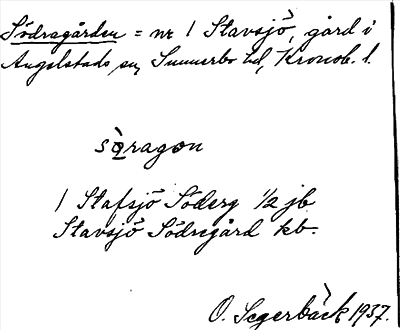 Södragården = nr 1 Stavsjö, gård i
Angelstads sn, Sunnerbo hd, Kronob. l.
sòragon
1 Stafsjö Söderg 1/2 jb
Stavsjö Södregård kb.
O. Segerbäck 1937.